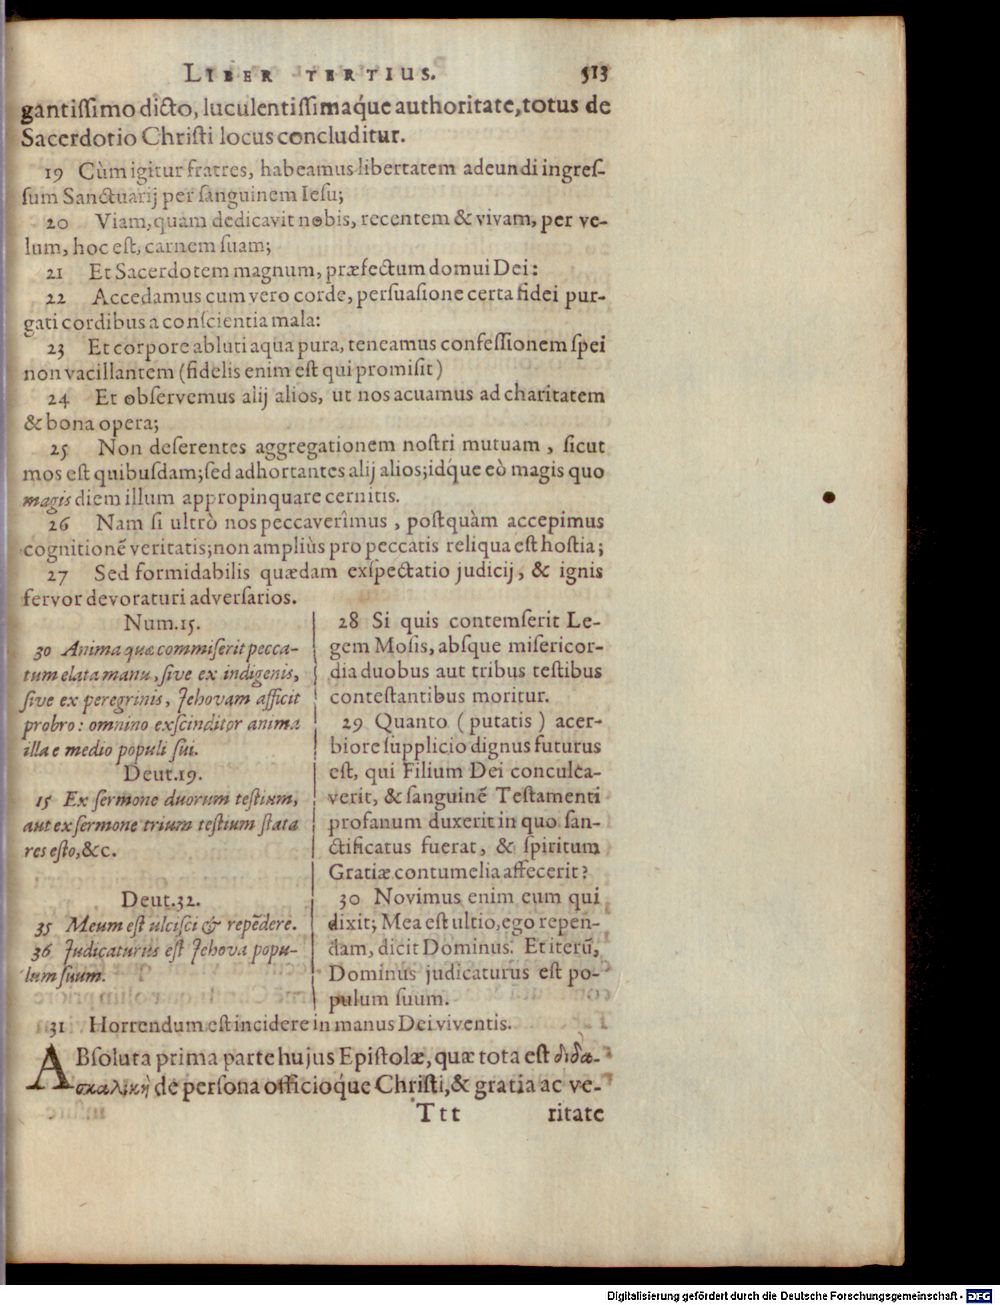 LIBER TERTIUS. 513
gantiſſimo dicto, luculentiſſimaq́ue authoritate, totus de
Sacerdotio Chriſti locus concluditur.
19 Cùm igitur fratres, habeamus libertatem adeundi ingreſ-
ſum Sanctuarij per ſanguinem Ieſu;
20 Viam, quam dedicavit nobis, recentem & vivam, per ve-
lum, hoc eſt, carnem ſuam;
21 Et Sacerdotem magnum, præfectum domui Dei:
22 Accedamus cum vero corde, perſuaſione certa fidei pur-
gati cordibus a conſcientia mala:
23 Et corpore abluti aqua pura, teneamus confeſſionem ſpei
non vacillantem (fidelis enim eſt qui promiſit)
24 Et obſervemus alij alios, ut nos acuamus ad charitatem
& bona opera;
25 Non deſerentes aggregationem noſtri mutuam, ſicut
mos eſt quibuſdam; ſed adhortantes alij alios; idq́ue eò magis quo
magis diem illum appropinquare cernitis.
26 Nam ſi ultrò nos peccaverîmus, poſtquàm accepimus
cognitionē veritatis; non ampliùs pro peccatis reliqua eſt hoſtia;
27 Sed formidabilis quædam exſpectatio judicij, & ignis
fervor devoraturi adverſarios.
Num. 15.
30 Anima quæ commiſerit pecca-
tum elata manu, ſive ex indigenis,
ſive ex peregrinis, Jehovam afficit
probro: omnino exſcinditor anima
illa e medio populi ſui.
Deut. 19.
15 Ex ſermone duorum teſtium,
aut ex ſermone trium teſtium ſtata
res eſto, &c.
Deut. 32.
35 Meum eſt ulciſci & repēdere.
36 Judicaturus eſt Jehova popu-
lum ſuum.
28 Si quis contemſerit Le-
gem Moſis, abſque miſericor-
dia duobus aut tribus teſtibus
conteſtantibus moritur.
29 Quanto (putatis) acer-
biore ſupplicio dignus futurus
eſt, qui Filium Dei conculca-
verit, & ſanguinē Teſtamenti
profanum duxerit in quo ſan-
ctificatus fuerat, & ſpiritum
Gratiæ contumelia affecerit?
30 Novimus enim eum qui
dixit; Mea eſt ultio, ego repen-
dam, dicit Dominus. Et iterū,
Dominus judicaturus eſt po-
pulum ſuum.
31 Horrendum eſt incidere in manus Dei viventis.
ABſoluta prima parte hujus Epiſtolæ, quæ tota eſt διδα-
σκαλικὴ de perſona officioq́ue Chriſti, & gratia ac ve-
Ttt ritate
Digitalisierung gefördert durch die Deutsche Forschungsgemeinschaft - DFG